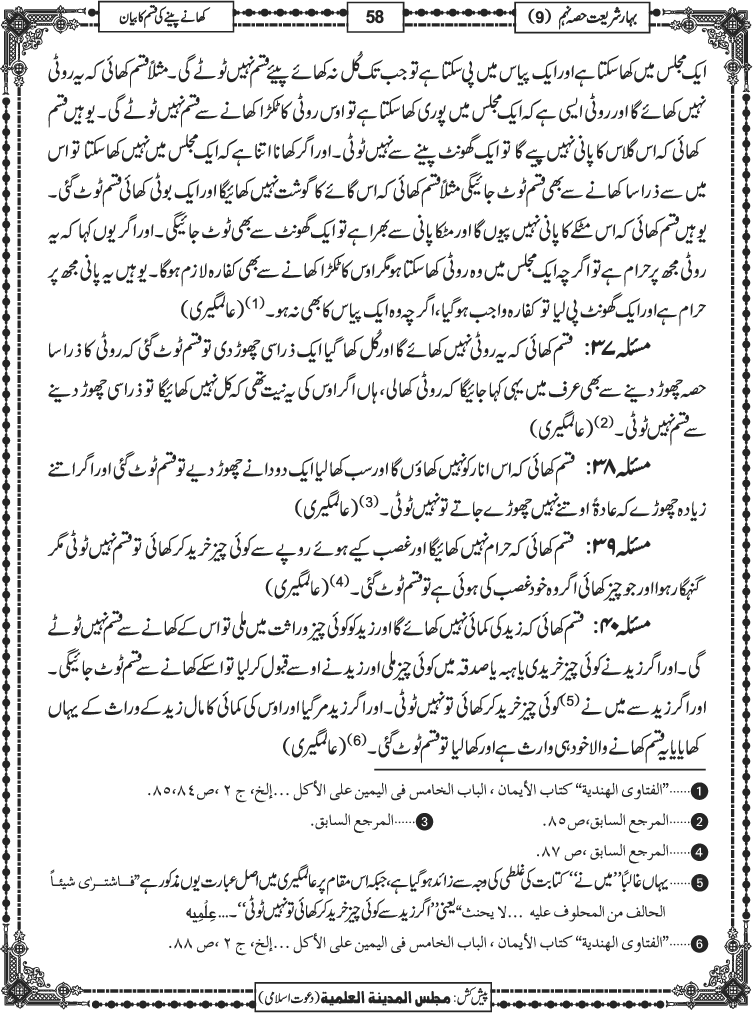 بہار شریعت حصہ نہم (9)
58
کھانے پینے کی قسم کا بیان
ایک مجلس میں کھا سکتا ہے اور ایک پیاس میں پی سکتا ہے تو جب تک کُل نہ کھائے پیئے قسم نہیں ٹوٹے گی۔ مثلاً قسم کھائی کہ یہ روٹی
نہیں کھائے گا اور روٹی ایسی ہے کہ ایک مجلس میں پوری کھا سکتا ہے تو اوس روٹی کا ٹکڑا کھانے سے قسم نہیں ٹوٹے گی۔ یوہیں قسم
کھائی کہ اس گلاس کا پانی نہیں پیے گا تو ایک گھونٹ پینے سے نہیں ٹوٹی۔ اور اگر کھانا اتنا ہے کہ ایک مجلس میں نہیں کھا سکتا تو اس
میں سے ذرا سا کھانے سے بھی قسم ٹوٹ جائیگی مثلاً قسم کھائی کہ اس گائے کا گوشت نہیں کھائیگا اور ایک بوٹی کھائی قسم ٹوٹ گئی۔
یوہیں قسم کھائی کہ اس مٹکے کا پانی نہیں پیوں گا اور مٹکا پانی سے بھرا ہے تو ایک گھونٹ سے بھی ٹوٹ جائیگی۔ اور اگر یوں کہا کہ یہ
روٹی مجھ پر حرام ہے تو اگرچہ ایک مجلس میں وہ روٹی کھا سکتا ہو مگر اوس کا ٹکڑا کھانے سے بھی کفارہ لازم ہوگا۔ یوہیں یہ پانی مجھ پر
حرام ہے اور ایک گھونٹ پی لیا تو کفارہ واجب ہوگیا، اگرچہ وہ ایک پیاس کا بھی نہ ہو۔(1) (عالمگیری)
مسئلہ ۳۷: قسم کھائی کہ یہ روٹی نہیں کھائے گا اور کُل کھا گیا ایک ذراسی چھوڑ دی تو قسم ٹوٹ گئی کہ روٹی کا ذرا سا
حصہ چھوڑ دینے سے بھی عرف میں یہی کہا جائیگا کہ روٹی کھالی، ہاں اگر اوس کی یہ نیت تھی کہ کل نہیں کھائیگا تو ذراسی چھوڑ دینے
سے قسم نہیں ٹوٹی۔(2) (عالمگیری)
مسئلہ ۳۸: قسم کھائی کہ اس انار کو نہیں کھاؤں گا اور سب کھا لیا ایک دو دانے چھوڑ دیے تو قسم ٹوٹ گئی اور اگر اتنے
زیادہ چھوڑے کہ عادۃً اوتنے نہیں چھوڑے جاتے تو نہیں ٹوٹی۔(3) (عالمگیری)
مسئلہ ۳۹: قسم کھائی کہ حرام نہیں کھائیگا اور غصب کیے ہوئے روپے سے کوئی چیز خرید کر کھائی تو قسم نہیں ٹوٹی مگر
گنہگار ہوا اور جو چیز کھائی اگر وہ خود غصب کی ہوئی ہے تو قسم ٹوٹ گئی۔(4) (عالمگیری)
مسئلہ ۴۰: قسم کھائی کہ زید کی کمائی نہیں کھائے گا اور زید کو کوئی چیز وراثت میں ملی تو اس کے کھانے سے قسم نہیں ٹوٹے
گی۔ اور اگر زید نے کوئی چیز خریدی یا ہبہ یا صدقہ میں کوئی چیز ملی اور زید نے اوسے قبول کرلیا تو اسکے کھانے سے قسم ٹوٹ جائیگی۔
اور اگر زید سے میں نے(5) کوئی چیز خرید کر کھائی تو نہیں ٹوٹی۔ اور اگر زید مر گیا اور اوس کی کمائی کا مال زید کے وارث کے یہاں
کھایا یا یہ قسم کھانے والا خود ہی وارث ہے اور کھا لیا تو قسم ٹوٹ گئی۔(6) (عالمگیری)
1 ......"الفتاوى الهندية" كتاب الأيمان ، الباب الخامس فى اليمين على الأكل ...إلخ، ج ٢ ،ص٨٥،٨٤.
2 ......المرجع السابق،ص٨٥. 3 ......المرجع السابق.
4 ......المرجع السابق ،ص ٨٧.
5 ......یہاں غالباً "میں نے" کتابت کی غلطی کی وجہ سے زائد ہوگیا ہے، جبکہ اس مقام پر عالمگیری میں اصل عبارت یوں مذکور ہے "فـاشتـرى شيئـاً
الحالف من المحلوف عليه ...لا يحنث" یعنی "اگر زید سے کوئی چیز خرید کر کھائی تو نہیں ٹوٹی"۔...عِلْمِیه
6 ......"الفتاوى الهندية" كتاب الأيمان ، الباب الخامس فى اليمين على الأكل ...إلخ، ج ٢ ،ص ٨٨.
پیش کش: مجلس المدینۃ العلمیۃ (دعوت اسلامی)